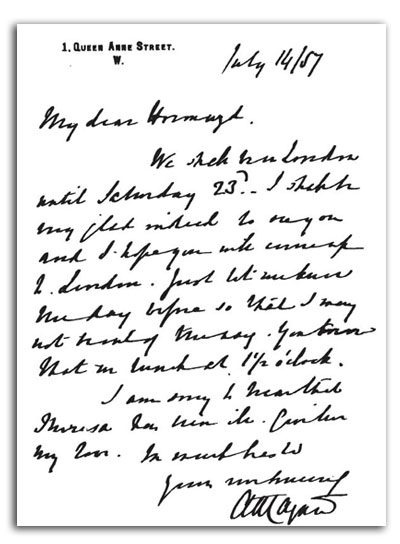 1, QUEEN ANNE STREET.
W.
July 14/87
My dear
We shall be in London
until Saturday 23rd. I shall be
very glad indeed to see you
and I hope you will come up
to London. Just let me know
the day before so that I may
not be out of the way. You know
that we lunch at 1½ o'clock.
I am sorry to hear that
Theresa has been ill. Give her
my love. In much haste
Yours